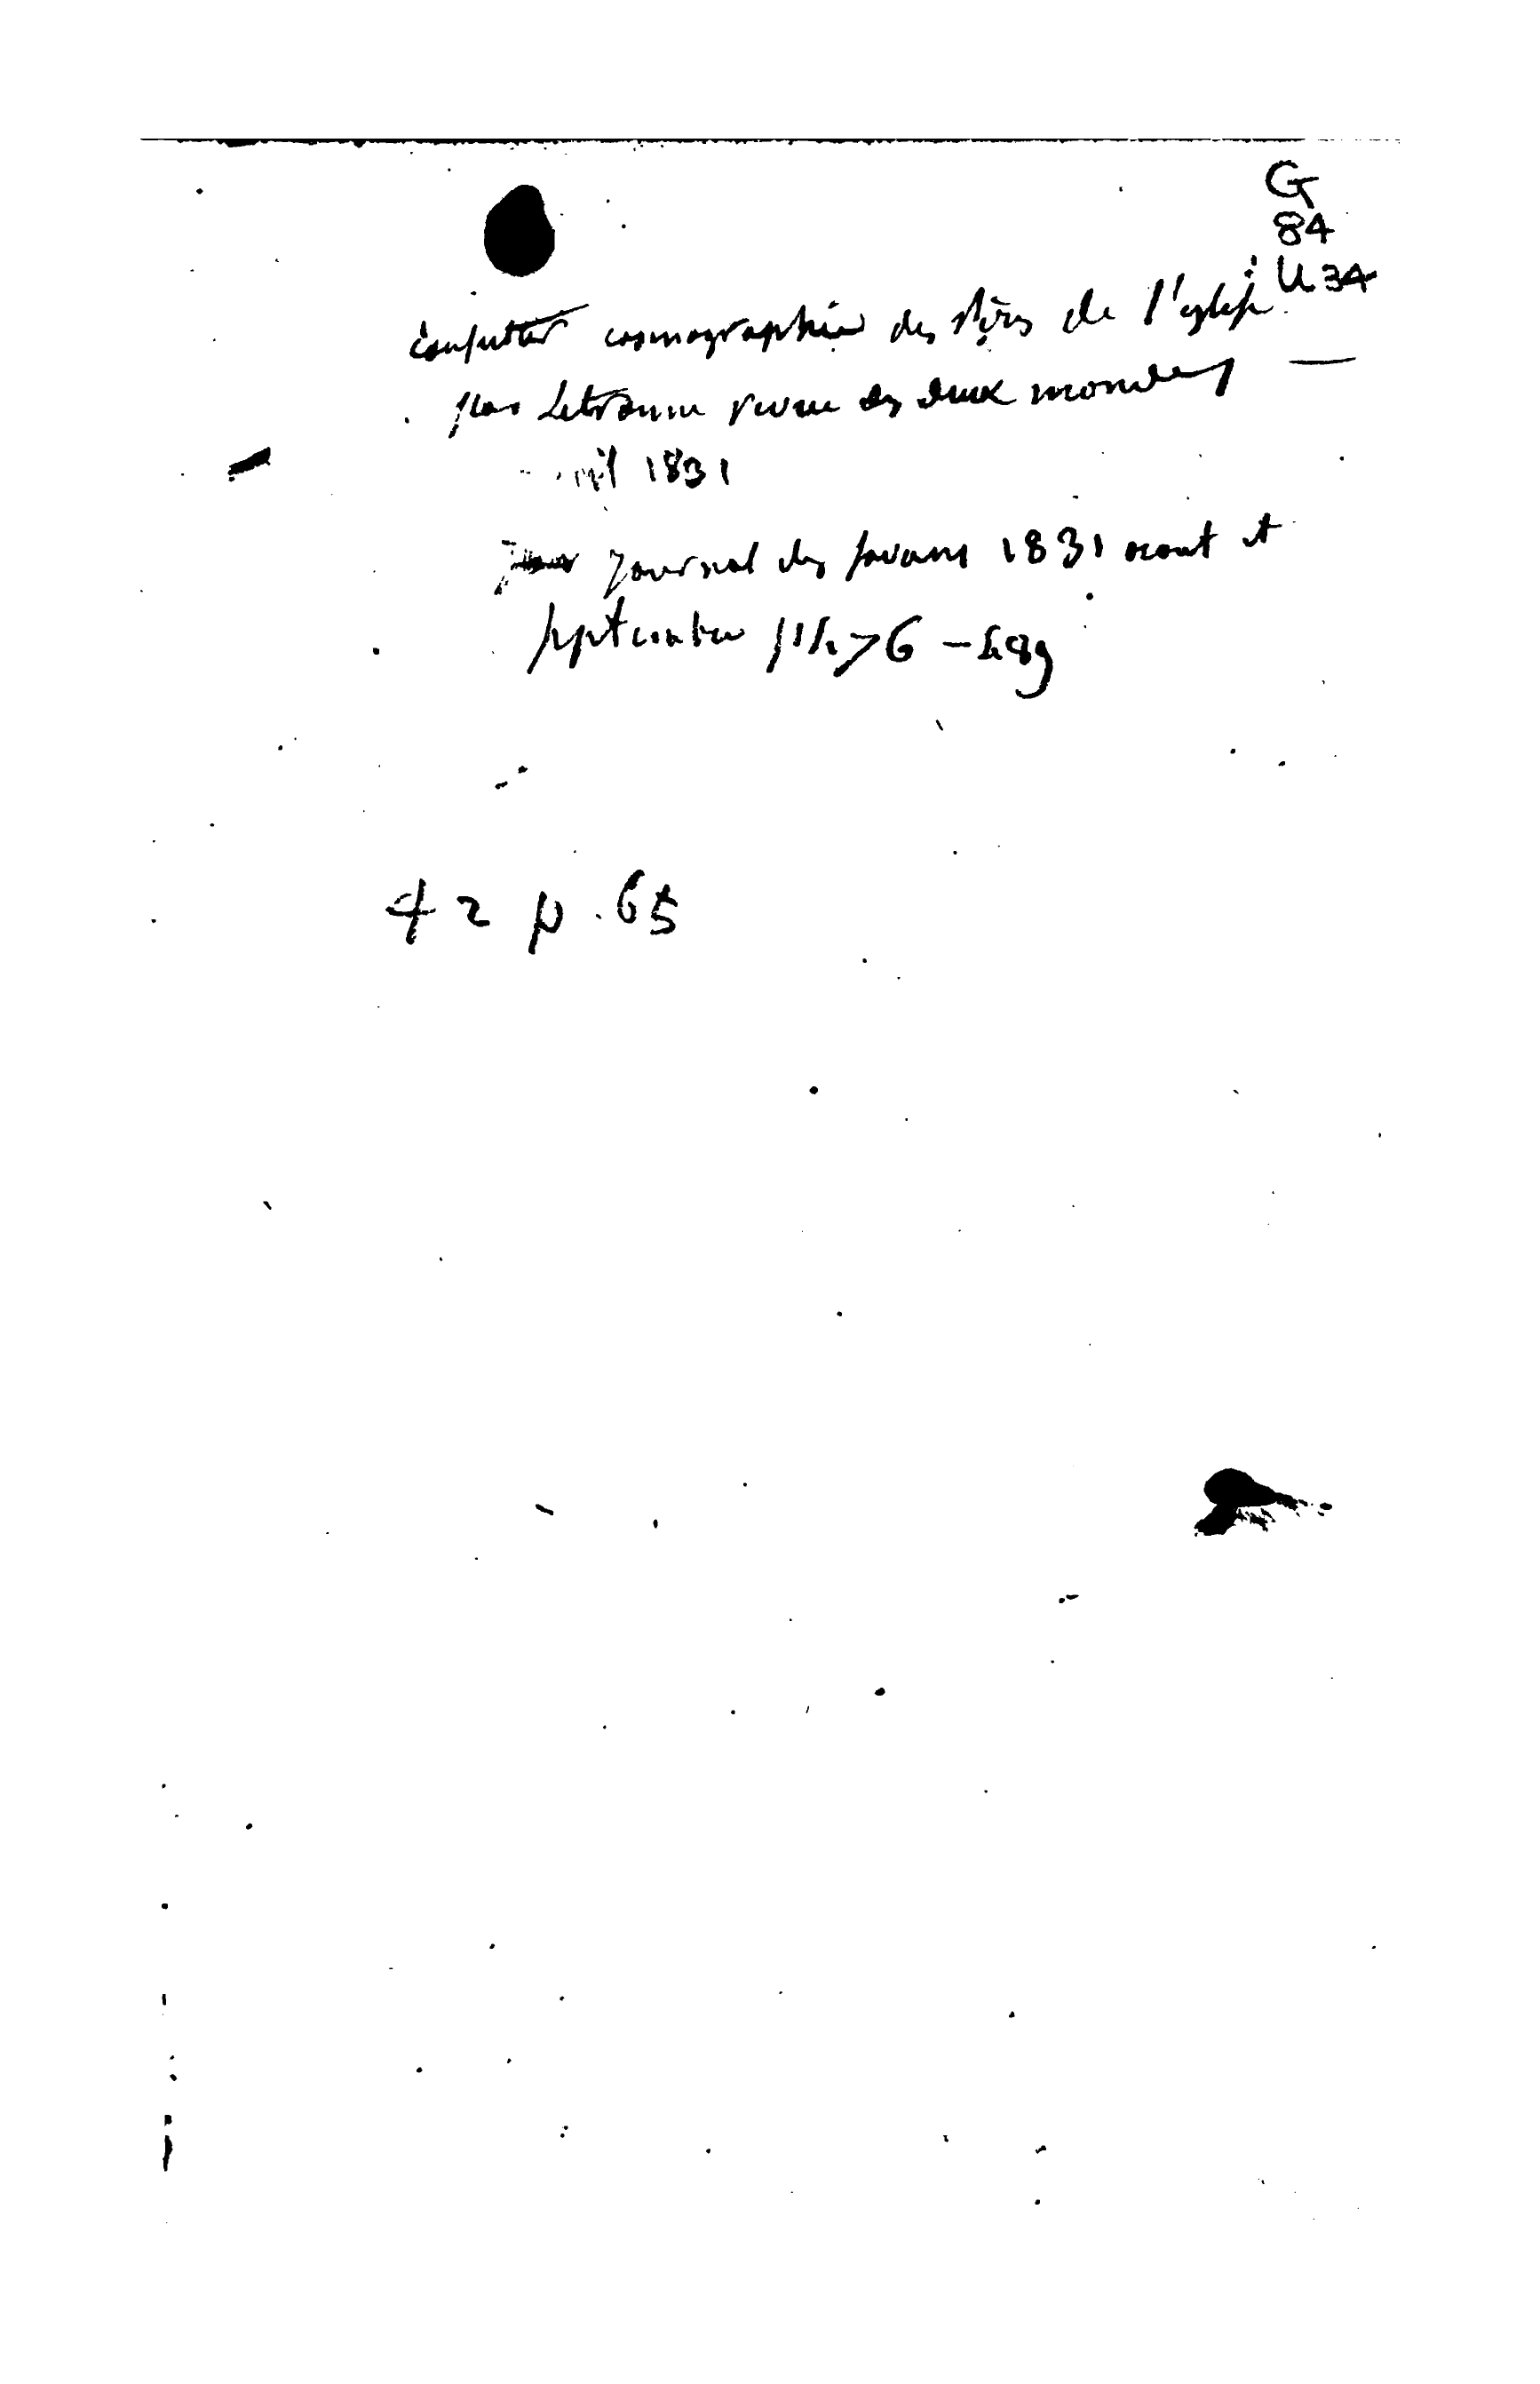 G
84
U34
consulter cosmographie des Pères de l'eglise
par Letronne revue des deux mondes —
1831
journal des savans 1831 aout et
septembre p 476 - 489
42 p. 65